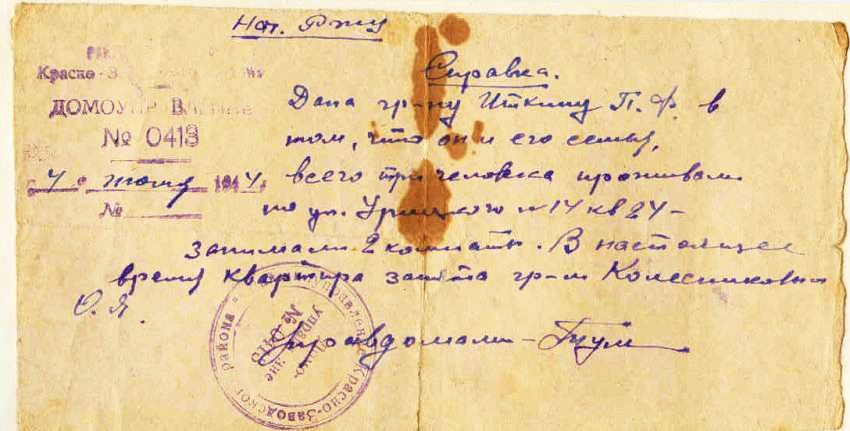 Справка.
Красно-З
ДОМОУПР ВЛЕНИЕ
№ 0418
4 июня 1944
№
Дана гр-ну Иткину П. Ф. в
том, что он и его семья,
всего три человека проживали
по ул. Урицкого № 14 кв 24 –
занимали 2 комнаты. В настоящее
время квартира занята гр-м Колесниковым
О. Я.
Управдомами –
управление Красно-Заводского района